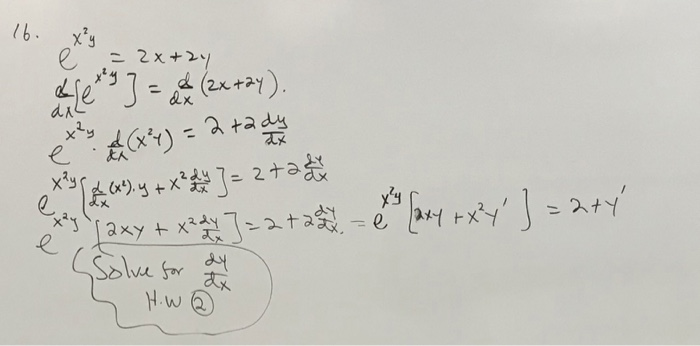 16.
e^{x²y} = 2x+2y
d/dx [e^{x²y}] = d/dx (2x+2y).
e^{x²y} · d/dx (x²y) = 2+2 dy/dx
e^{x²y} [d/dx (x²)·y + x² dy/dx] = 2+2 dy/dx
e^{x²y} [2xy + x² dy/dx] = 2+2 dy/dx. = e^{x²y} [2xy + x²y'] = 2+y'
Solve for dy/dx
H.W ②